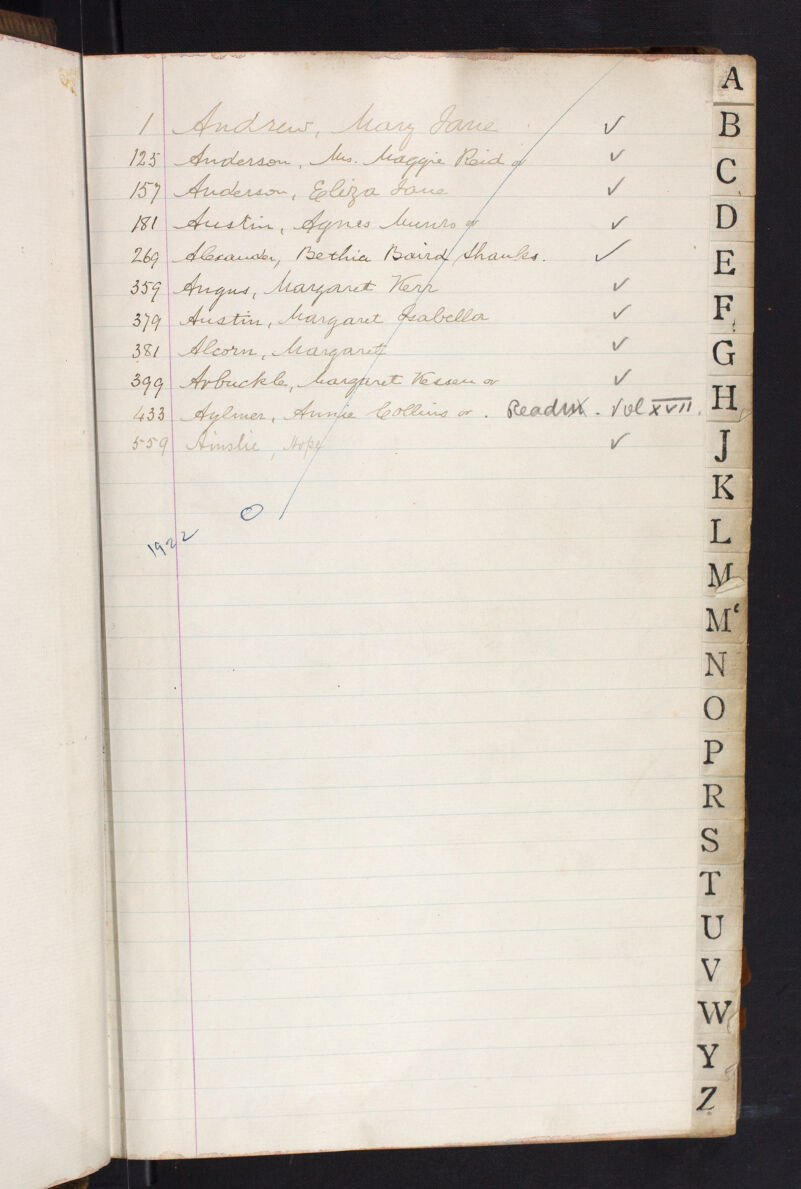 1 Andrew, Mary Jane ✓
125 Anderson, Mrs. Maggie Reid or ✓
157 Anderson, Eliza Jane ✓
181 Austin, Agnes Munro or ✓
269 Alexander, Bethia Baird Shanks. ✓
359 Angus, Margaret Kerr ✓
379 Austin, Margaret Isabella ✓
381 Alcorn, Margaret ✓
399 Arbuckle, Margaret Kessen or ✓
433 Aylmer, Annie Collins or. Readm. Vol XVII.
559 Ainslie, Hope ✓
1922
A
B
C
D
E
F
G
H
J
K
L
M
Mc
N
O
P
R
S
T
U
V
W
Y
Z